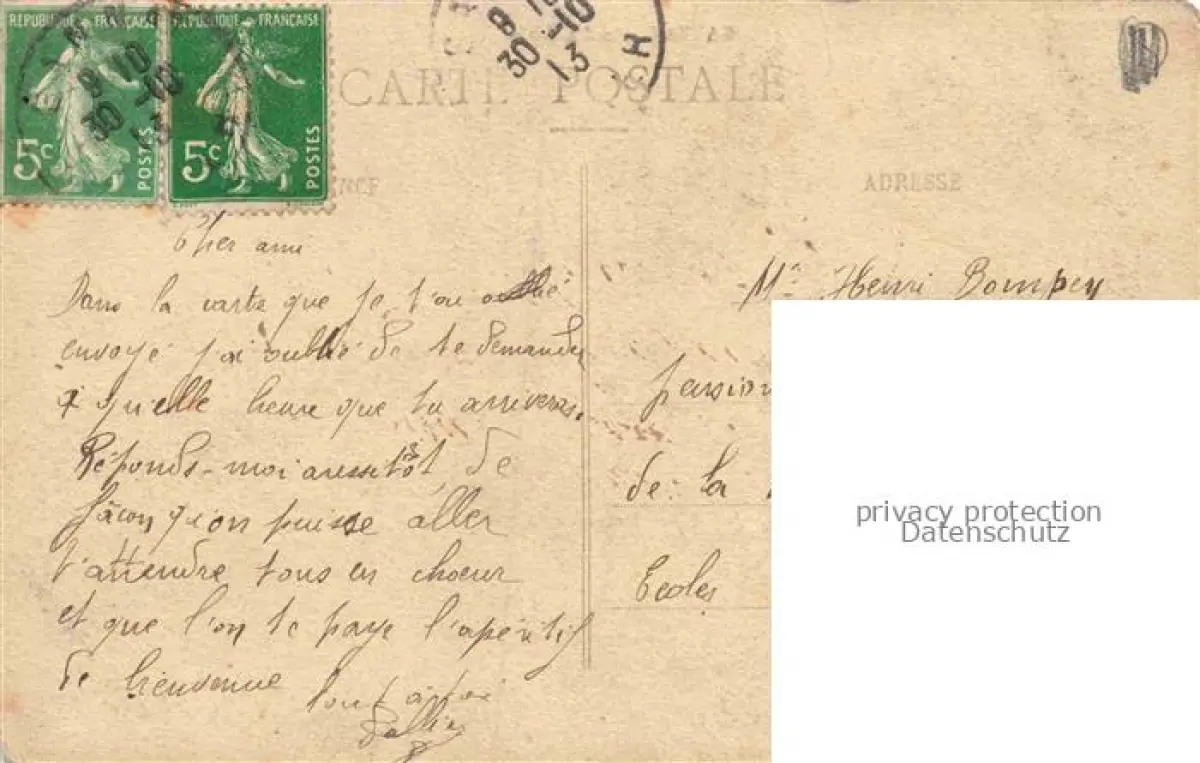 RÉPUBLIQUE FRANÇAISE
5c
POSTES
RÉPUBLIQUE FRANÇAISE
5c
POSTES
8 10
30 -10
13
8 10
30 -10
13
CARTE POSTALE
ADRESSE
Cher ami
Dans la carte que je t'ai
envoyé j'ai oublié de te demander
à quelle heure que tu arriveras.
Réponds-moi aussitôt, de
façon qu'on puisse aller
t'attendre tous en choeur
et que l'on te paye l'apéritif
de bienvenue tout à toi
Mr Henri Bompey
pension
de la
Ecoles
privacy protection
Datenschutz